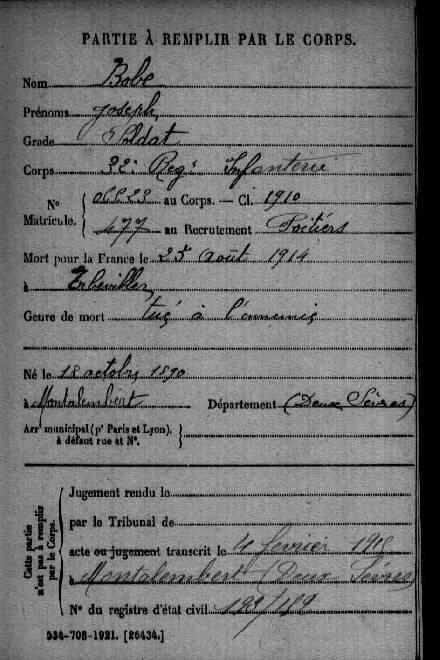 PARTIE À REMPLIR PAR LE CORPS.
Nom Bobe
Prénoms Joseph
Grade Soldat
Corps 32e Regt Infanterie
N° Matricule. { au Corps. — Cl. 1910
477 au Recrutement Poitiers
Mort pour la France le 25 Août 1914
à Erbeviller
Genre de mort tué à l'ennemi
Né le 18 octobre 1890
à Montalembert Département (Deux Sèvres)
Arrt municipal (pr Paris et Lyon), à défaut rue et N°. }
Cette partie n'est pas à remplir par le Corps.
Jugement rendu le
par le Tribunal de
acte ou jugement transcrit le 4 février 1918
à Montalembert (Deux Sèvres)
N° du registre d'état civil 199/189
534-708-1921. [26434.]